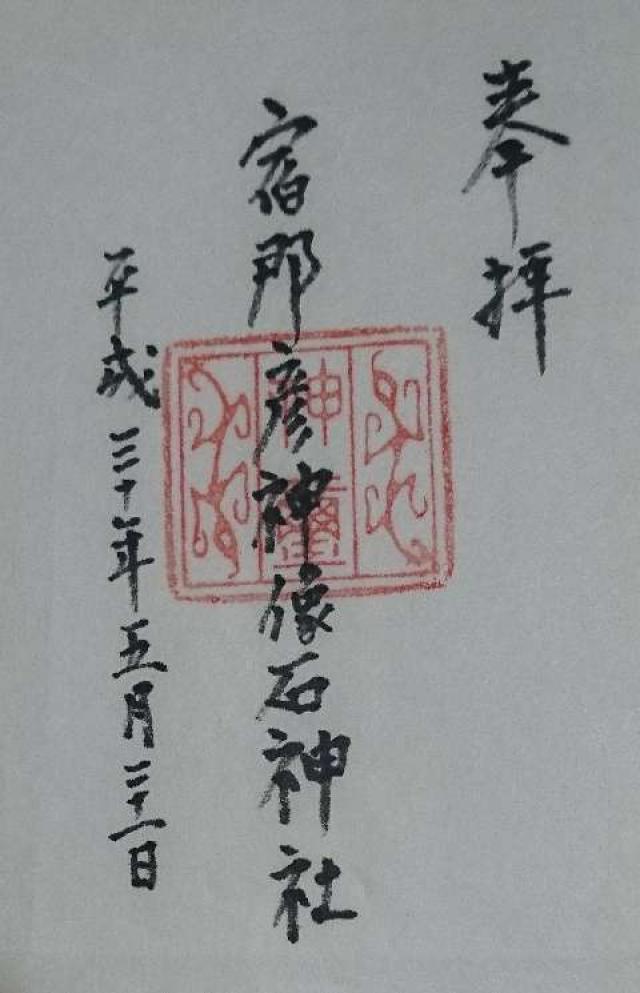 奉拝
宿那彦神像石神社
平成三十年五月二十一日
神璽